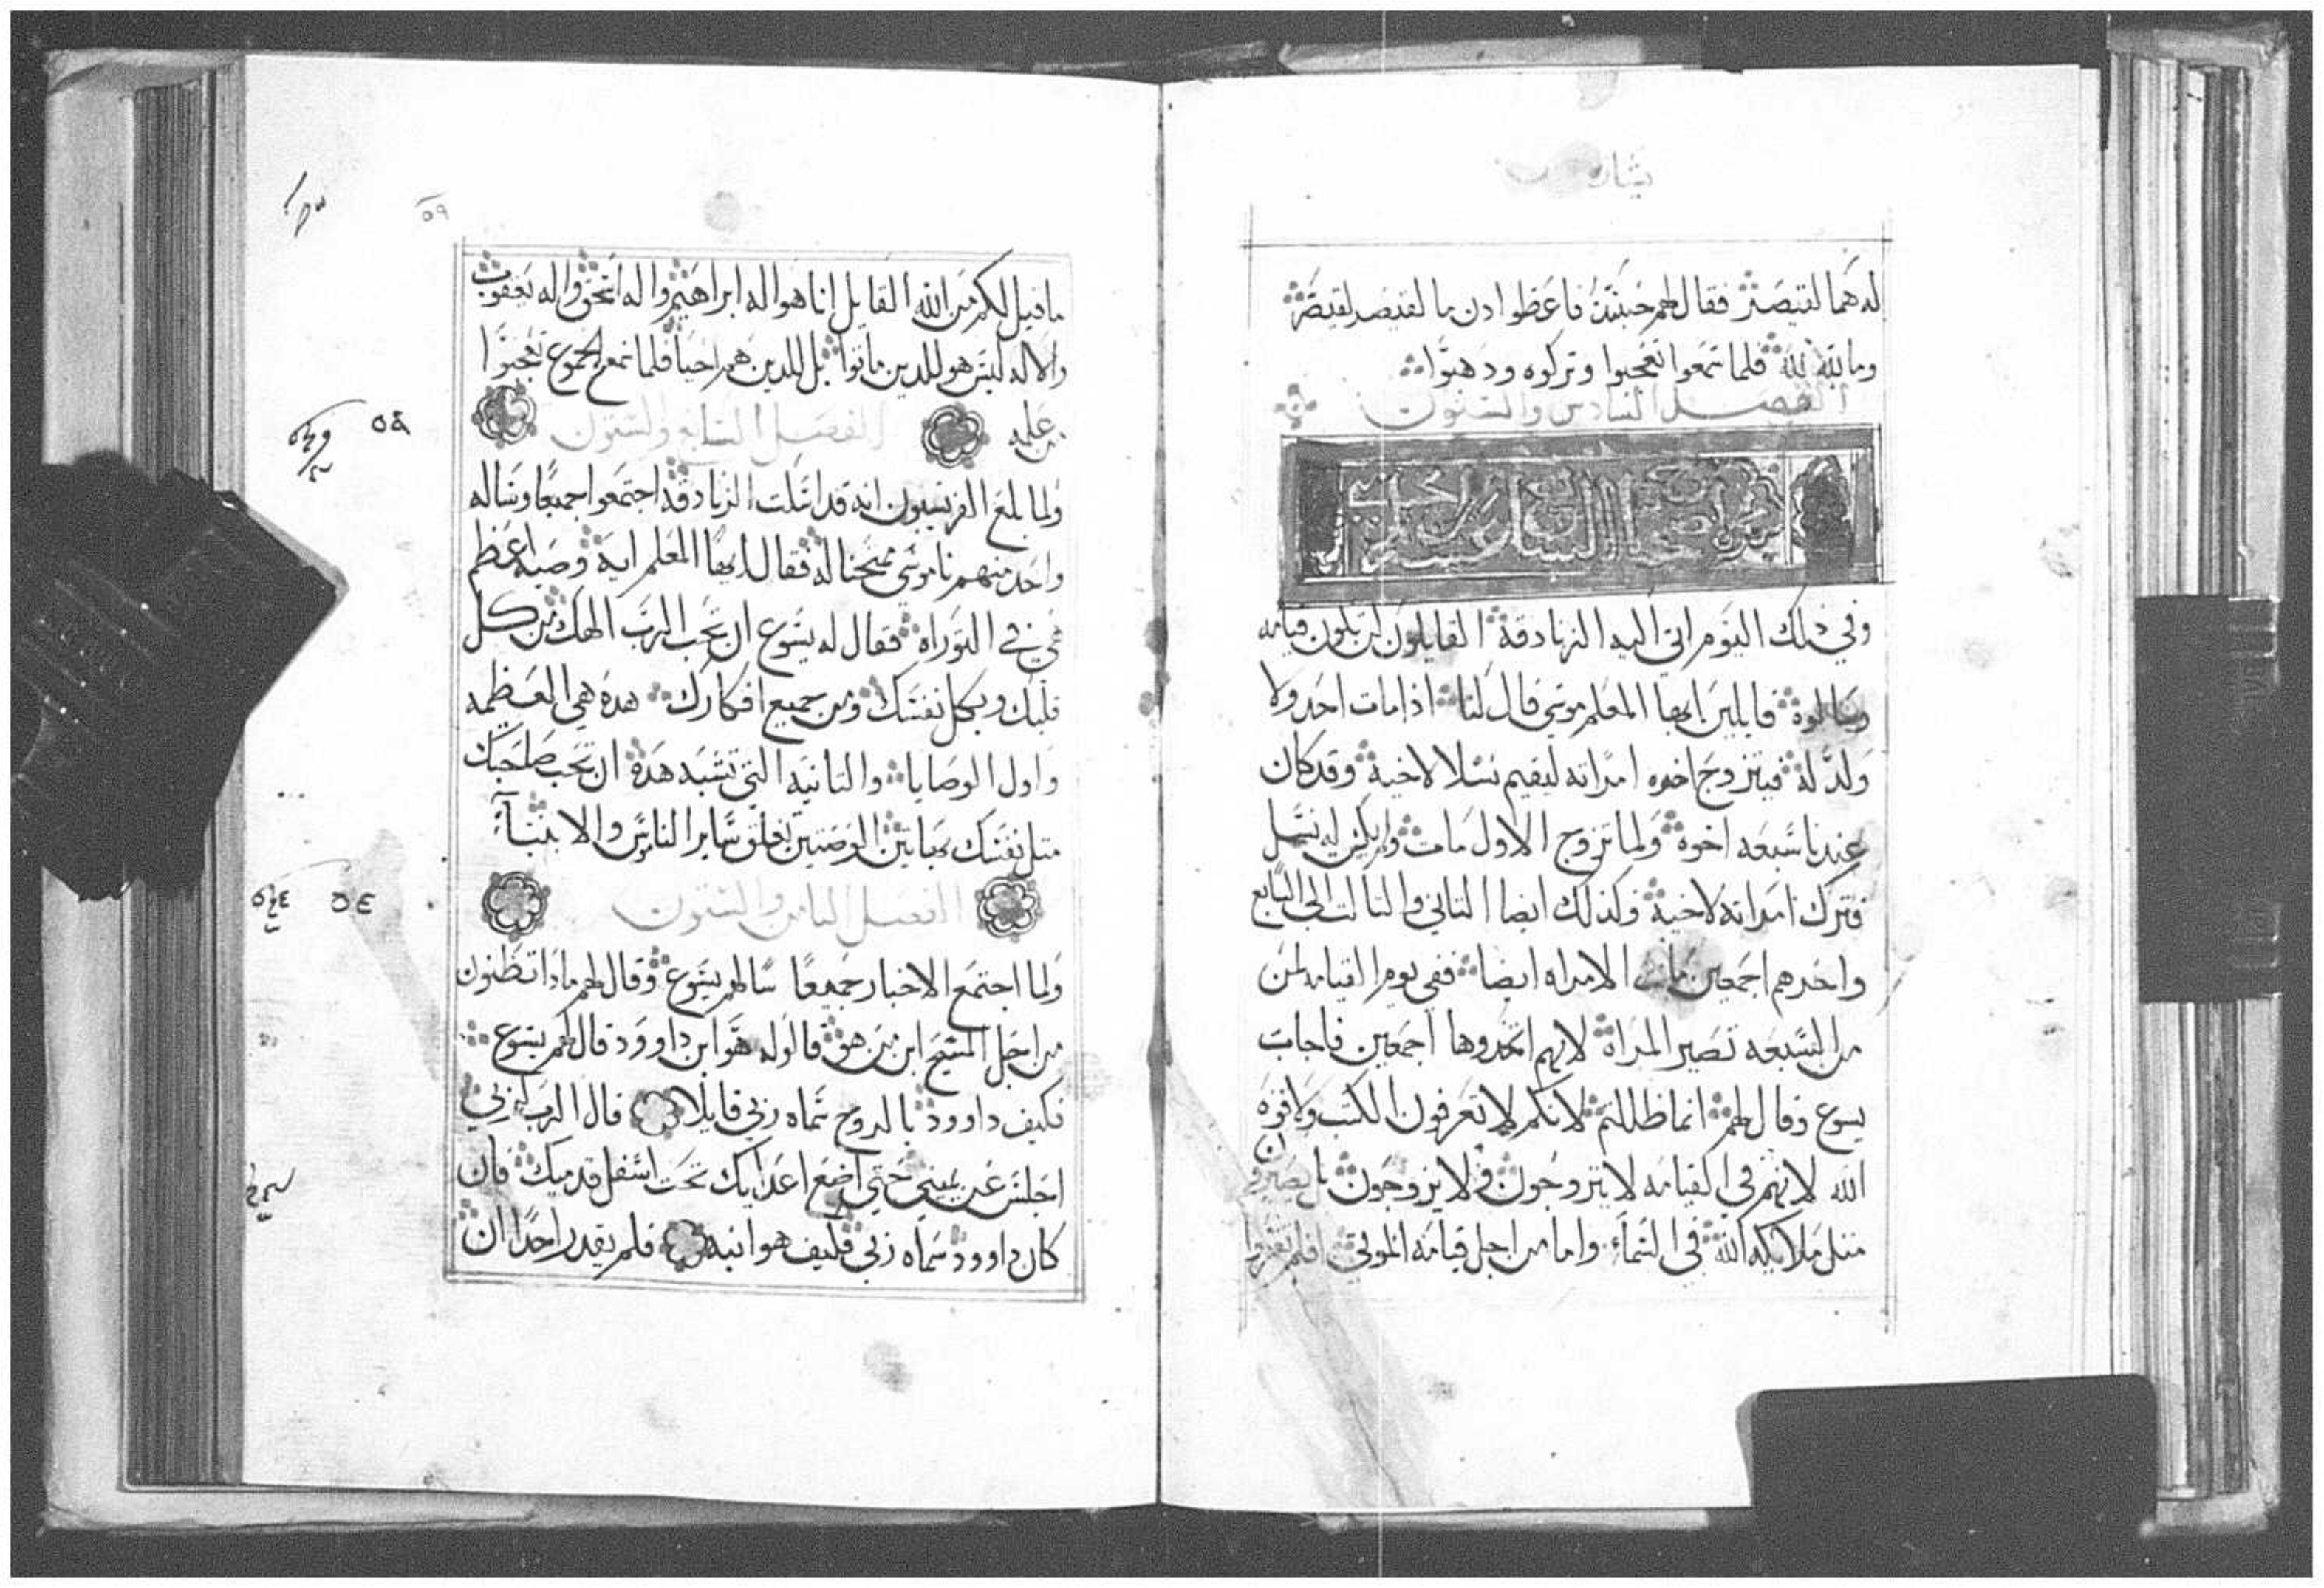 بشارة
له هما لقيصر فقال لهم حينئذ فاعطوا ادن ما لقيصر لقيصر
وما لله لله فلما سمعوا تعجبوا وتركوه ودهبوا
الفصل السادس والستون
وفي ذلك اليوم اتي اليه الزنادقه القايلون ليس تكون قيامه
وسالوه قايلين ايها المعلم موسي قال لنا اذا مات احد ولا
ولد له فيتزوج اخوه امراته ليقيم نسلا لاخيه وقد كان
عندنا سبعه اخوه ولما تزوج الاول مات ولم يكن له نسل
فترك امراته لاخيه وكذلك ايضا التاني والتالت الي السابع
واخرهم اجمعين ماتت الامراه ايضا ففي يوم القيامه لمن
من السبعه تصير المراه لانهم اتخدوها اجمعين فاجاب
يسوع وقال لهم انما ظللتم لانكم لا تعرفون الكتب ولا قوه
الله لانهم في القيامه لا يتزوجون ولا يزوجون بل يصيرون
متل ملايكه الله في السماء واما من اجل قيامه الموتي افلم تقروا
٥٩
ما قيل لكم من الله القايل انا هو اله ابراهيم واله اسحق واله يعقوب
والاله ليس هو للدين ماتوا بل للدين هم احيا فلما سمع الجموع تعجبوا
من علمه الفصل السابع والستون
ولما بلغ الفريسيون انه قد اسكت الزنادقه اجتمعوا جميعا وساله
واحد منهم ناموسي ممتحنا له فقال ايها المعلم ايه وصيه اعظم
هي في التوراه فقال له يسوع ان تحب الرب الهك من كل
قلبك وبكل نفسك ومن جميع افكارك هده هي العظيمه
واول الوصايا والتانيه التي تشبه هده ان تحب صاحبك
متل نفسك بهاتين الوصيتين تعلق ساير الناموس والانبياء
الفصل التامن والستون
ولما اجتمع الاحبار جميعا سالهم يسوع وقال لهم مادا تظنون
من اجل المسيح ابن من هو قالو له هو ابن داوود قال لهم يسوع
فكيف داوود بالروح سماه ربي قايلا قال الرب لربي
اجلس عن يميني حتي اضع اعدايك تحت اسفل قدميك فان
كان داوود سماه ربي فكيف هو ابنه فلم يقدر احدا ان